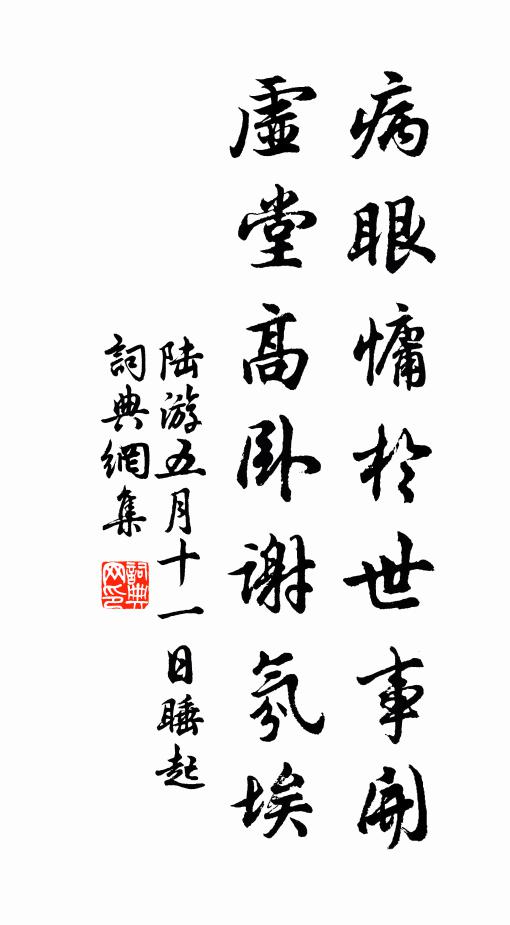 病眼慵於世事開
虛堂高臥謝氛埃
陆游五月十一日睡起
詞典網集
詞典网印